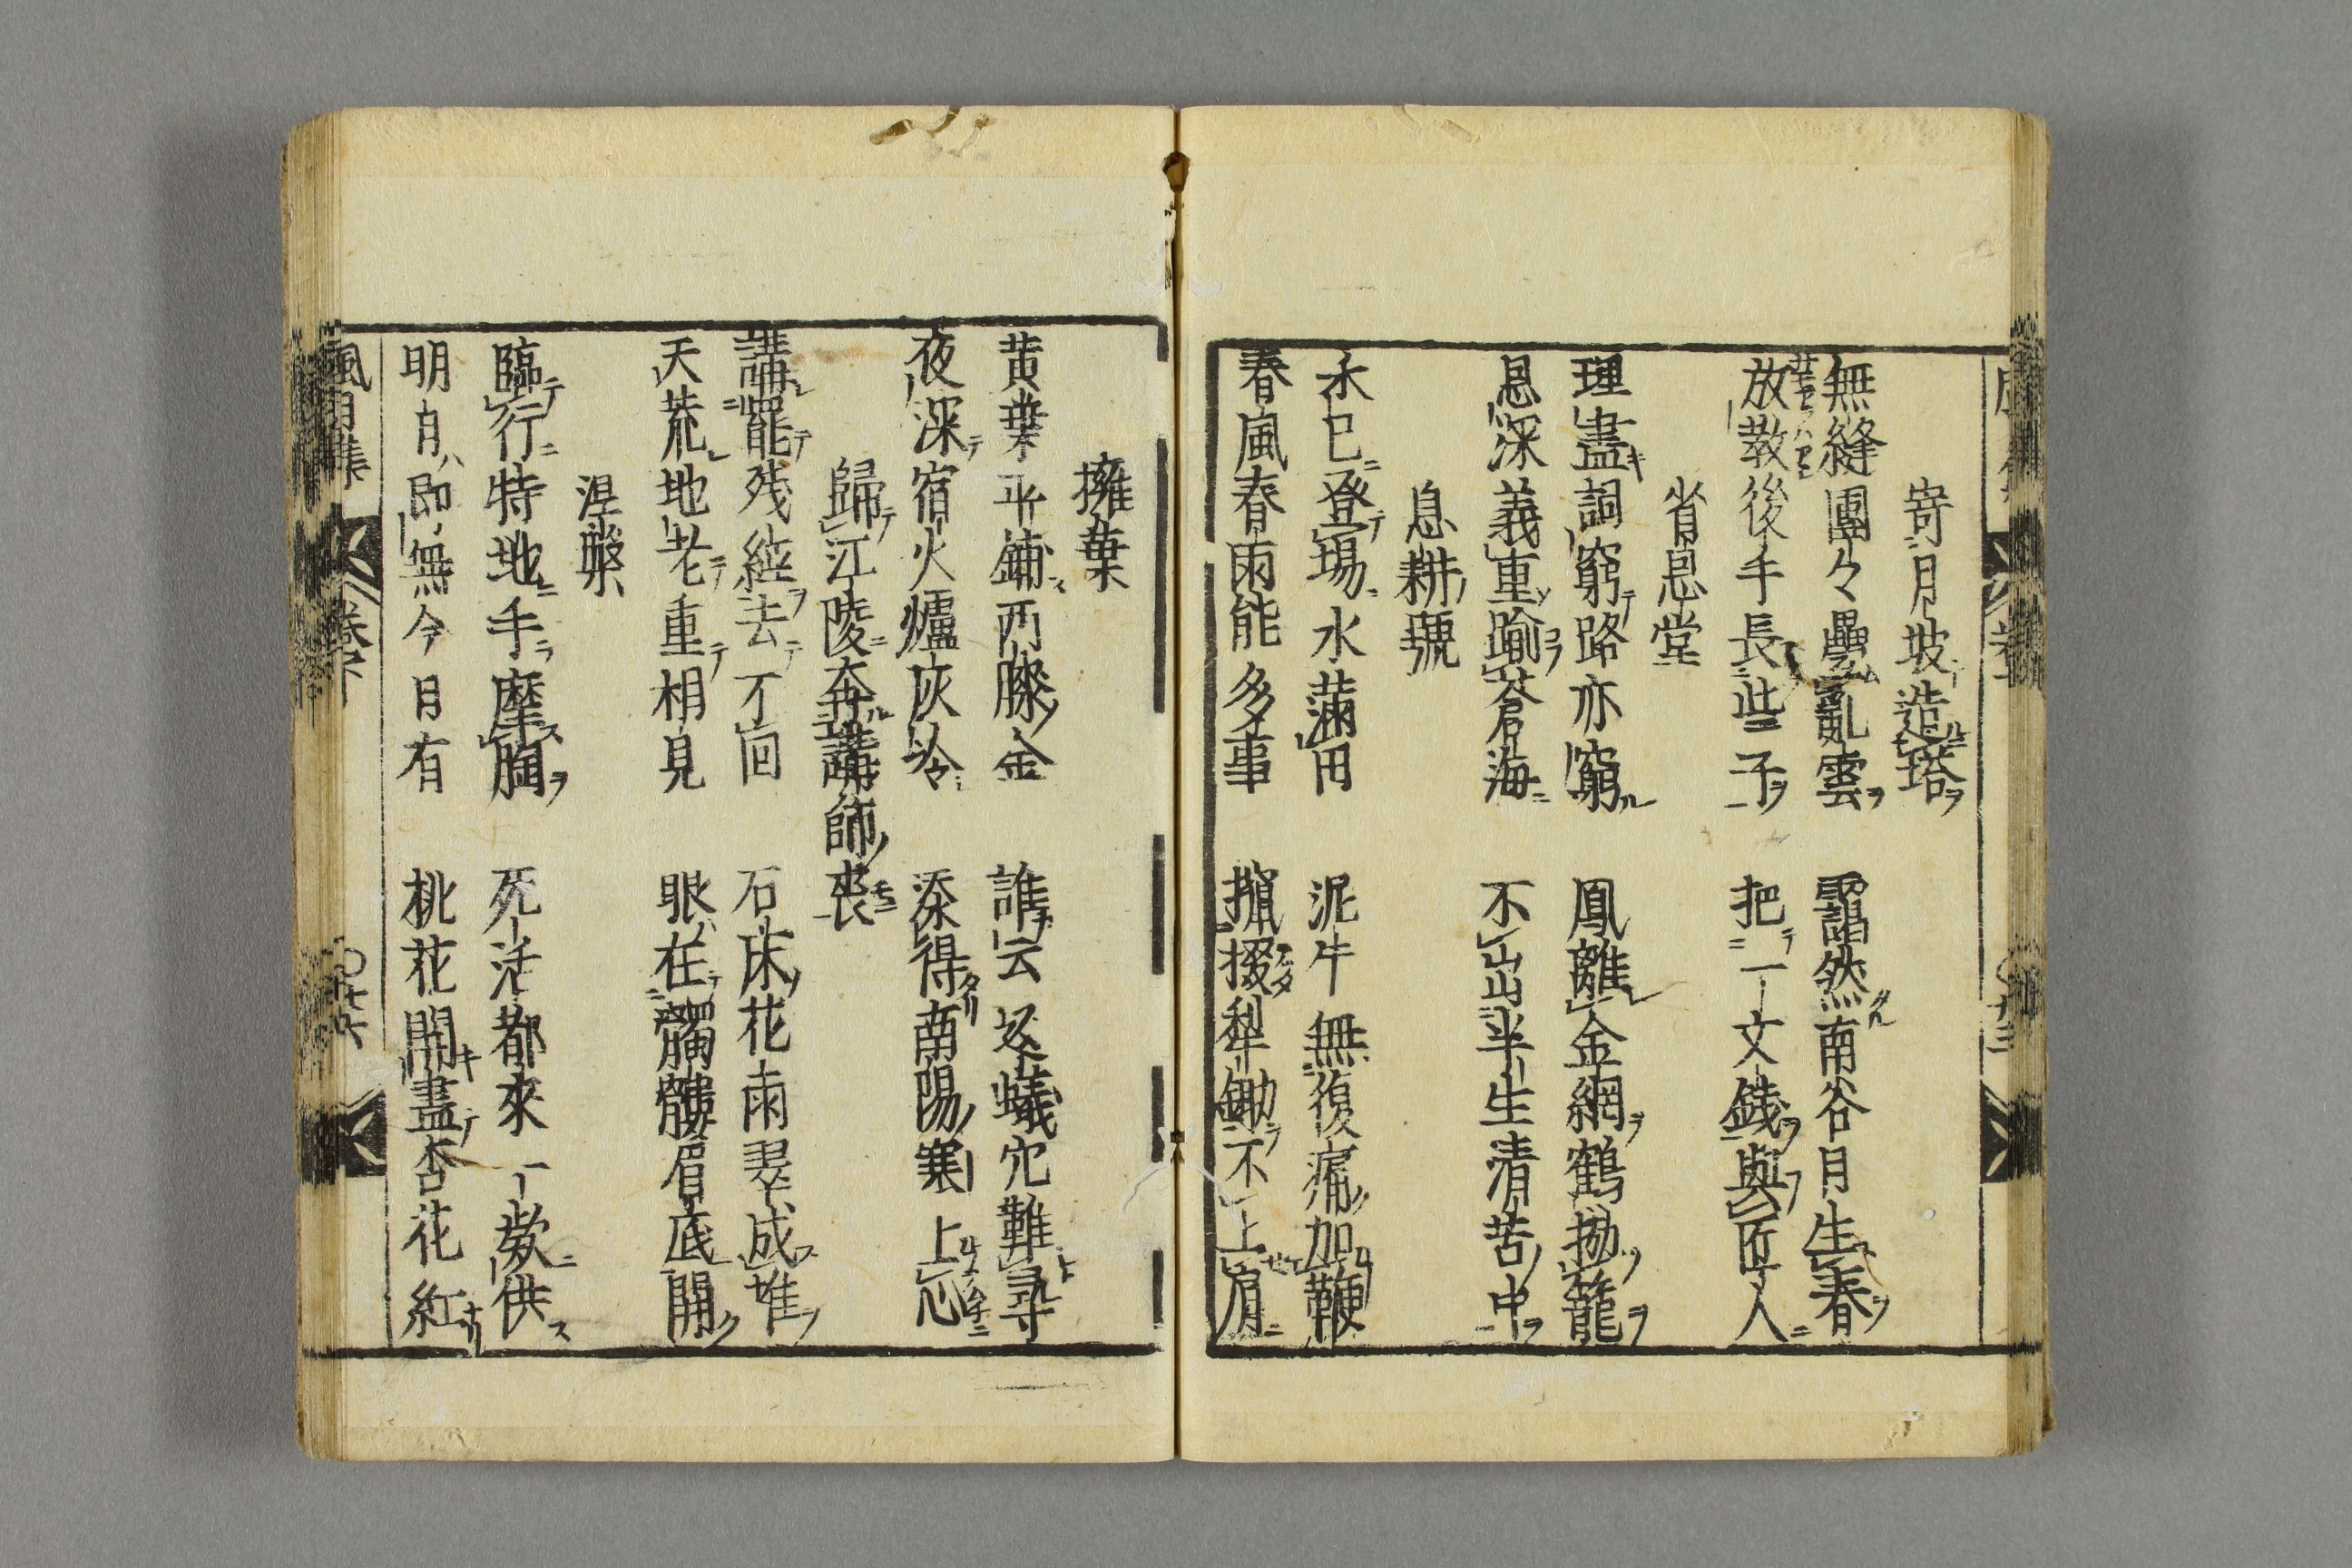 寄月坡造塔
無縫團々疊亂雲 靄然南谷月生春
放教後手長些子 把一文錢與匠人
省息堂
理盡詞窮路亦窮 鳳離金網鶴拋籠
恩深義重踰蒼海 不出半生清苦中
息耕號
禾已登場水滿田 泥牛無復痛加鞭
春風春雨能多事 攛掇犁鋤不上肩
擁葉
黄葉平鋪両膝金 誰云怒蟻穴難尋
夜深宿火爐灰冷 添得南陽塞上心
歸江陵奔講師喪
講罷残經去不回 石床花雨翠成堆
天荒地老重相見 眼在髑髏眉底開
涅槃
臨行特地手摩胸 死活都來一欵供
明日即無今日有 桃花開盡杏花紅
風月集 卷下